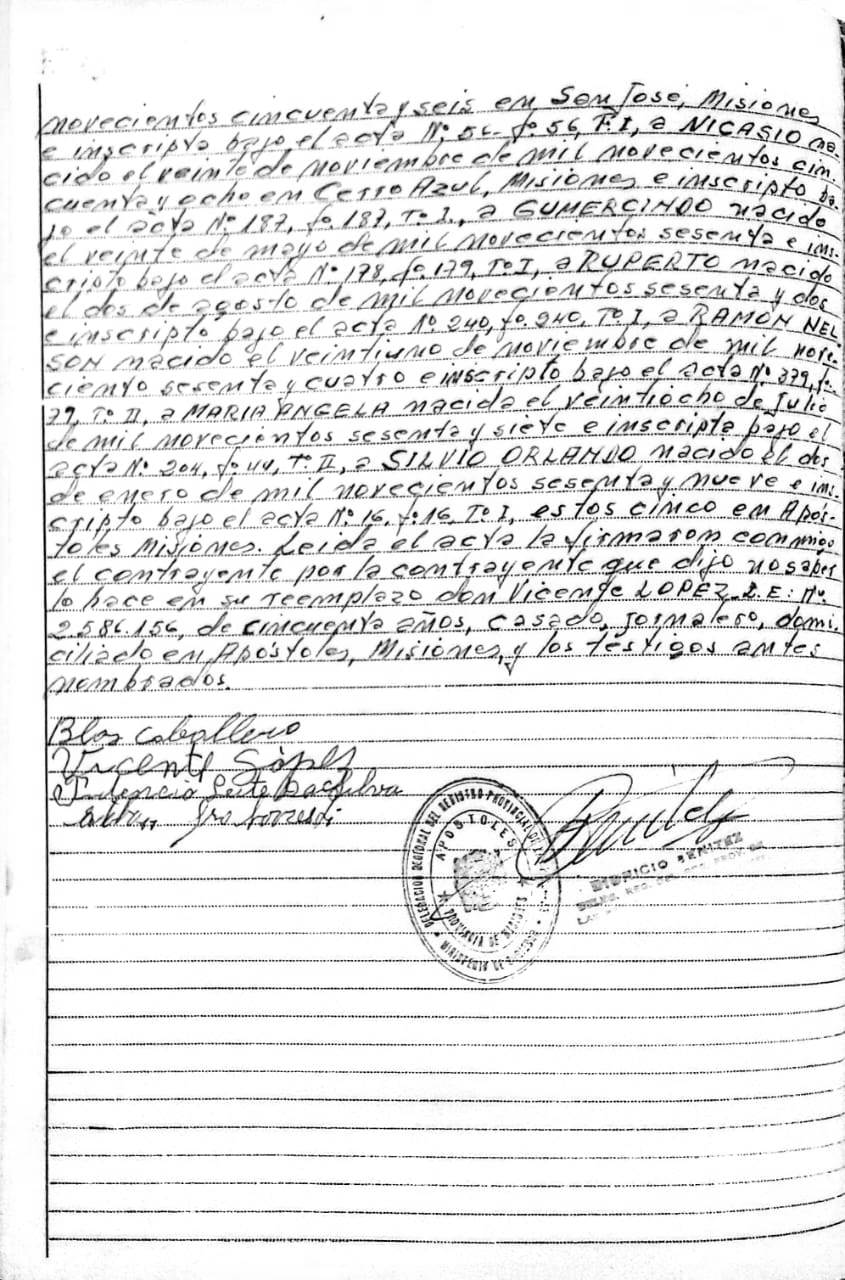 novecientos cincuenta y seis en San José, Misiones
e inscripta bajo el acta Nº 56- fº 56, T. I, a NICASIO na-
cido el veinte de noviembre de mil novecientos cin
cuenta y ocho en Cerro Azul, Misiones e inscripto ba-
jo el acta Nº 187, fº 187, Tº I., a GUMERCINDO nacido
el veinte de mayo de mil novecientos sesenta e ins-
cripto bajo el acta Nº 178, fº 179, Tº I, a RUPERTO nacido
el dos de agosto de mil novecientos sesenta y dos
e inscripto bajo el acta Nº 240, fº 240, Tº I, a RAMON NEL
SON nacido el veintiuno de noviembre de mil nove-
ciento sesenta y cuatro e inscripto bajo el acta Nº 379, fº
79, Tº II, a MARIA ANGELA nacida el veintiocho de Julio
de mil novecientos sesenta y siete e inscripta bajo el
acta Nº 204, fº 44, Tº II, a SILVIO ORLANDO nacido el dos
de enero de mil novecientos sesenta y nueve e ins-
cripto bajo el acta Nº 16, fº 16, Tº I, estos cinco en Após-
toles Misiones. Leida el acta la firmaron conmigo
el contrayente por la contrayente que dijo no saber
lo hace en su reemplazo don Vicente LOPEZ L.E: Nº
2.586.156, de cincuenta años, casado, jornalero, domi-
ciliado en Apóstoles, Misiones, y los testigos antes
nombrados.
Blas Caballero
Vicente López
Leite Da Silva
DELEGACION REGIONAL DEL REGISTRO PROVINCIAL DE
APOSTOLES
PROVINCIA DE MISIONES
MINISTERIO DE GOBIERNO
BENITEZ